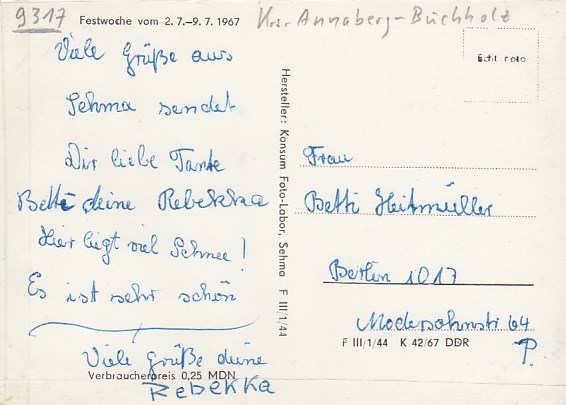 9317
Festwoche vom 2.7.–9.7.1967
Krs. Annaberg-Buchholz
Echt Foto
Viele Grüße aus
Sehma sendet
Dir liebe Tante
Betti deine Rebekka
Hier liegt viel Schnee!
Es ist sehr schön
Viele Grüße deine
Rebekka
Verbraucherpreis 0,25 MDN
Hersteller: Konsum Foto-Labor, Sehma F III/1/44
Frau
Betti Heitmüller
Berlin 1017
Modersohnstr 64
F III/1/44 K 42/67 DDR
P.